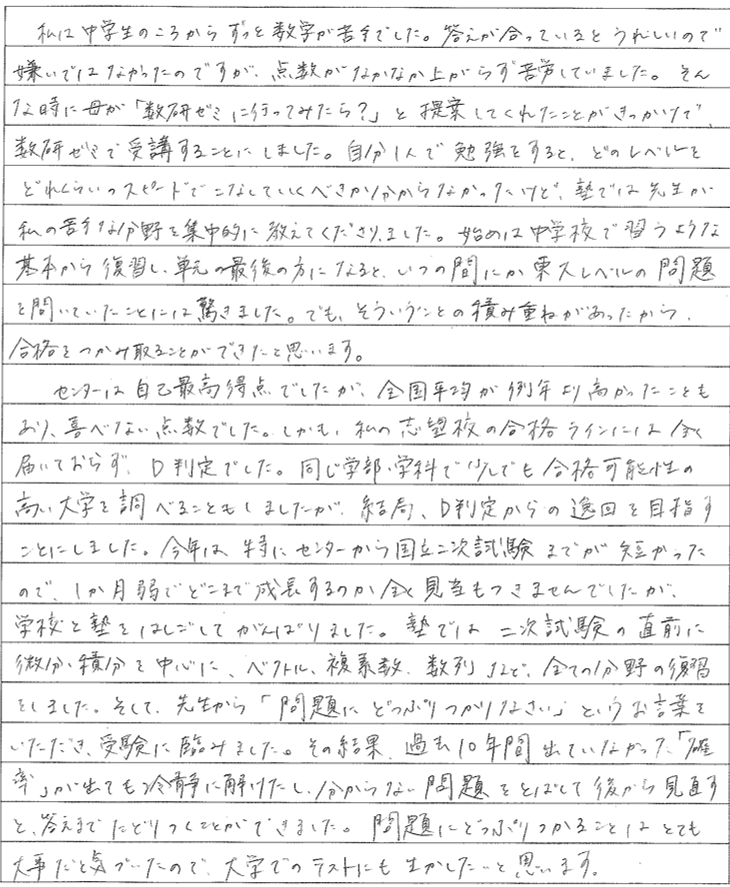 私は中学生のころからずっと数学が苦手でした。答えが合っているとうれしいので
嫌いではなかったのですが、点数がなかなか上がらず苦労していました。そん
な時に母が「数研ゼミに行ってみたら？」と提案してくれたことがきっかけで、
数研ゼミで受講することにしました。自分1人で勉強をすると、どのレベルを
どれくらいのスピードでこなしていくべきか分からなかったけど、塾では先生が
私の苦手な分野を集中的に教えてくださりました。始めは中学校で習うような
基本から復習し、単元の最後の方になると、いつの間にか東大レベルの問題
を問いていたことには驚きました。でも、そういうことの積み重ねがあったから、
合格をつかみ取ることができたと思います。
センターは自己最高得点でしたが、全国平均が例年より高かったことも
あり、喜べない点数でした。しかも、私の志望校の合格ラインには全く
届いておらず、D判定でした。同じ学部・学科で少しでも合格可能性の
高い大学を調べることもしましたが、結局、D判定からの逸回を目指す
ことにしました。今年は特にセンターから国立二次試験までが短かった
ので、1か月弱でどこまで成長するのか全く見当もつきませんでしたが、
学校と塾をはしごしてがんばりました。塾では二次試験の直前に
微分・積分を中心に、ベクトル、複素数、数列など、全ての分野の復習
をしました。そして、先生から「問題にどっぷりつかりなさい」というお言葉を
いただき、受験に臨みました。その結果、過去10年間出ていなかった「確
率」が出ても冷静に解けたし、分からない問題をとばして後から見直す
と、答えまでたどりつくことができました。問題にどっぷりつかることはとても
大事だと気づいたので、大学でのテストにも生かしたいと思います。